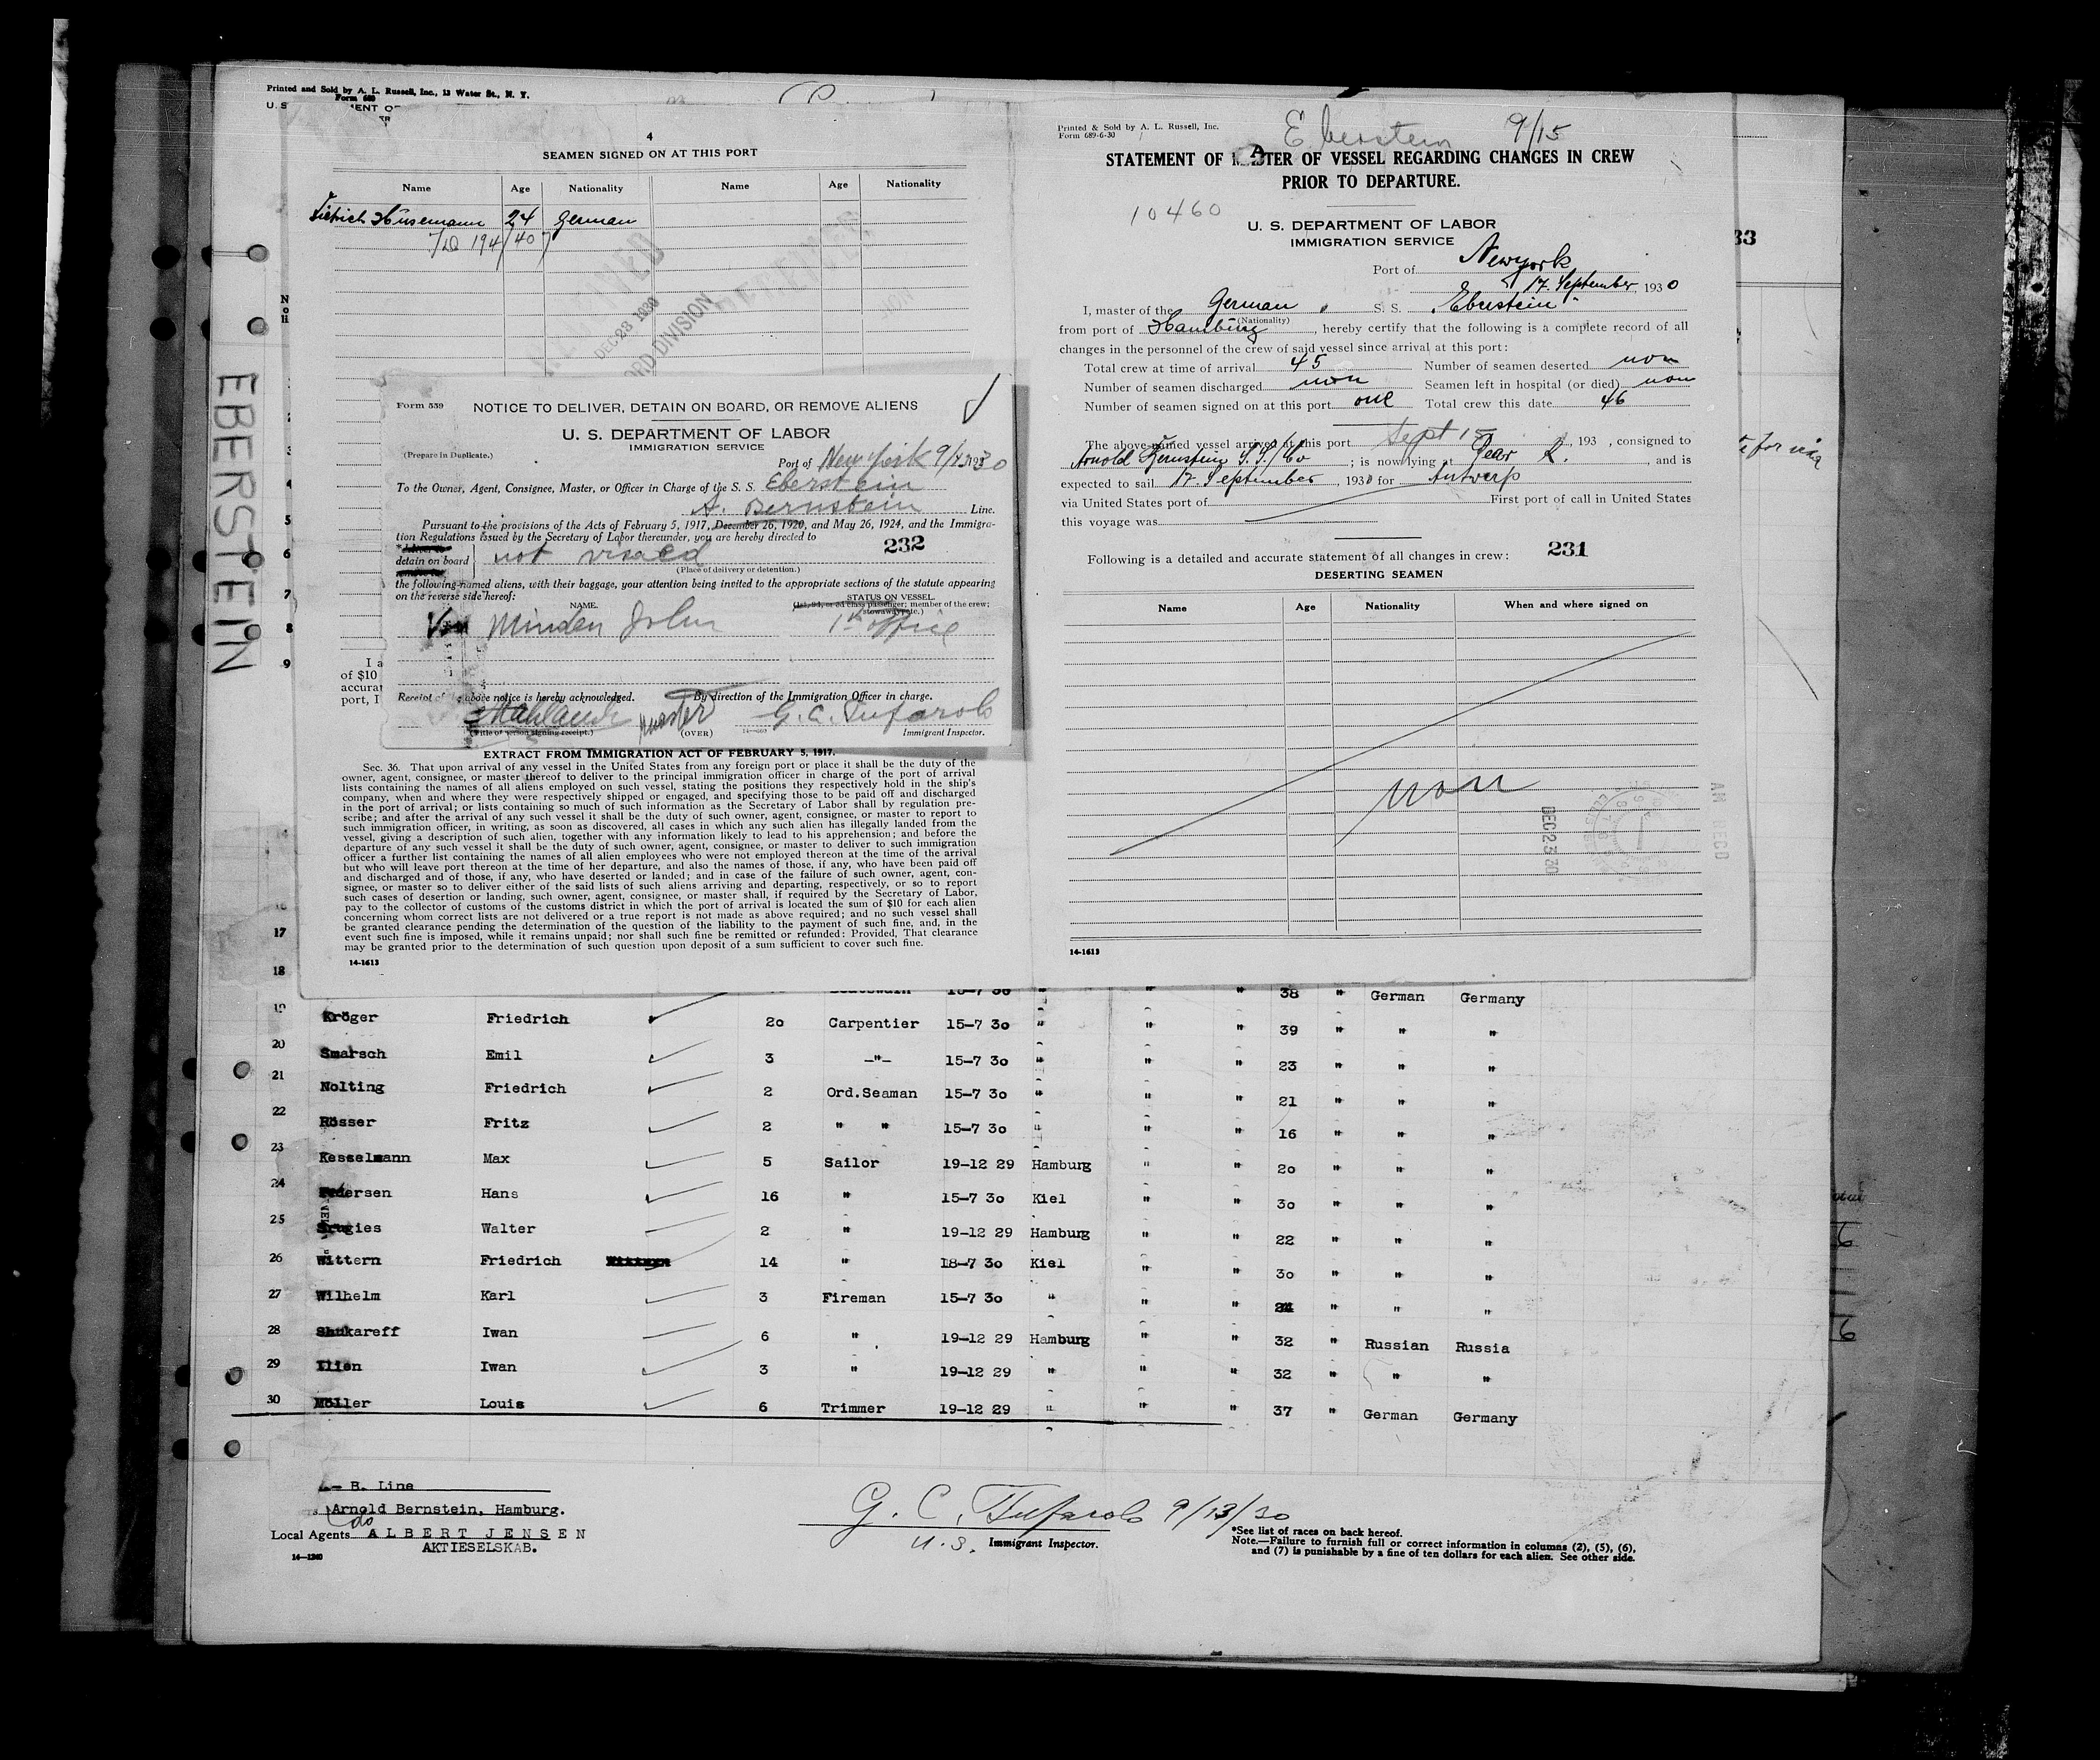 Printed and Sold by A. L. Russell, Inc., 13 Water St., N. Y.
Form 689
U. S
EBERSTEIN
4
SEAMEN SIGNED ON AT THIS PORT
Name Age Nationality Name Age Nationality
Dietrich Hüsemann 24 German
DEC 28 1930
RECORD DIVISION
Form 559
NOTICE TO DELIVER, DETAIN ON BOARD, OR REMOVE ALIENS
U. S. DEPARTMENT OF LABOR
IMMIGRATION SERVICE
(Prepare in Duplicate.)
Port of New York 9/15 1930
To the Owner, Agent, Consignee, Master, or Officer in Charge of the S. S. Eberstein
A. Bernstein Line.
Pursuant to the provisions of the Acts of February 5, 1917, December 26, 1920, and May 26, 1924, and the Immigra-
tion Regulations issued by the Secretary of Labor thereunder, you are hereby directed to
232
detain on board not visaed
(Place of delivery or detention.)
the following-named aliens, with their baggage, your attention being invited to the appropriate sections of the statute appearing
on the reverse side hereof:
NAME. STATUS ON VESSEL
(1st, 2d, or 3d class passenger; member of the crew;
stowaway, etc.)
Von Minden John 1st office
Receipt of the above notice is hereby acknowledged. By direction of the Immigration Officer in charge.
Master G. C. Tufarolo
(Title of person signing receipt.) (OVER) 14—669 Immigrant Inspector.
I a
of $10
accurat
port, I
EXTRACT FROM IMMIGRATION ACT OF FEBRUARY 5, 1917.
Sec. 36. That upon arrival of any vessel in the United States from any foreign port or place it shall be the duty of the
owner, agent, consignee, or master thereof to deliver to the principal immigration officer in charge of the port of arrival
lists containing the names of all aliens employed on such vessel, stating the positions they respectively hold in the ship's
company, when and where they were respectively shipped or engaged, and specifying those to be paid off and discharged
in the port of arrival; or lists containing so much of such information as the Secretary of Labor shall by regulation pre-
scribe; and after the arrival of any such vessel it shall be the duty of such owner, agent, consignee, or master to report to
such immigration officer, in writing, as soon as discovered, all cases in which any such alien has illegally landed from the
vessel, giving a description of such alien, together with any information likely to lead to his apprehension; and before the
departure of any such vessel it shall be the duty of such owner, agent, consignee, or master to deliver to such immigration
officer a further list containing the names of all alien employees who were not employed thereon at the time of the arrival
but who will leave port thereon at the time of her departure, and also the names of those, if any, who have been paid off
and discharged and of those, if any, who have deserted or landed; and in case of the failure of such owner, agent, con-
signee, or master so to deliver either of the said lists of such aliens arriving and departing, respectively, or so to report
such cases of desertion or landing, such owner, agent, consignee, or master shall, if required by the Secretary of Labor,
pay to the collector of customs of the customs district in which the port of arrival is located the sum of $10 for each alien
concerning whom correct lists are not delivered or a true report is not made as above required; and no such vessel shall
be granted clearance pending the determination of the question of the liability to the payment of such fine, and, in the
event such fine is imposed, while it remains unpaid; nor shall such fine be remitted or refunded: Provided, That clearance
may be granted prior to the determination of such question upon deposit of a sum sufficient to cover such fine.
14-1613
Printed & Sold by A. L. Russell, Inc.
Form 689-6-30
Eberstein 9/15
STATEMENT OF MASTER OF VESSEL REGARDING CHANGES IN CREW
PRIOR TO DEPARTURE.
10460
U. S. DEPARTMENT OF LABOR
IMMIGRATION SERVICE
Port of Newyork
17. September, 1930
I, master of the German S. S. "Eberstein"
(Nationality)
from port of Hamburg, hereby certify that the following is a complete record of all
changes in the personnel of the crew of said vessel since arrival at this port:
Total crew at time of arrival 45 Number of seamen deserted non
Number of seamen discharged non Seamen left in hospital (or died) non
Number of seamen signed on at this port one Total crew this date 46
The above-named vessel arrived at this port Sept 15, 193 , consigned to
Arnold Bernstein S.S./Co; is now lying at Pear 2., and is
expected to sail 17. September, 1930 for Antwerp
via United States port of First port of call in United States
this voyage was
Following is a detailed and accurate statement of all changes in crew: 231
DESERTING SEAMEN
Name Age Nationality When and where signed on
non
DEC 23 30
AM RECD
14-1613
33
Boatswain 38 " German Germany
19 Kröger Friedrich 20 Carpentier 15-7 30 " " " 39 " " "
20 Smarsch Emil 3 -"- 15-7 30 " " " 23 " " "
21 Nolting Friedrich 2 Ord.Seaman 15-7 30 " " " 21 " " "
22 Rösser Fritz 2 " " 15-7 30 " " " 16 " " "
23 Kesselmann Max 5 Sailor 19-12 29 Hamburg " " 20 " " "
24 Pedersen Hans 16 " 15-7 30 Kiel " " 30 " " "
25 Walter 2 " 19-12 29 Hamburg " " 22 " " "
26 Wittern Friedrich 14 " 18-7 30 Kiel " " 30 " " "
27 Wilhelm Karl 3 Fireman 15-7 30 " " " " " "
28 Shukareff Iwan 6 " 19-12 29 Hamburg " " 32 " Russian Russia
29 Ilien Iwan 3 " 19-12 29 " " " 32 " " "
30 Möller Louis 6 Trimmer 19-12 29 " " " 37 " German Germany
— B. Line
Arnold Bernstein, Hamburg.
Local Agents ALBERT JENSEN
AKTIESELSKAB.
14—1240
G. C. Tufarolo 9/13/30
U. S. Immigrant Inspector.
*See list of races on back hereof.
Note.—Failure to furnish full or correct information in columns (2), (5), (6),
and (7) is punishable by a fine of ten dollars for each alien. See other side.